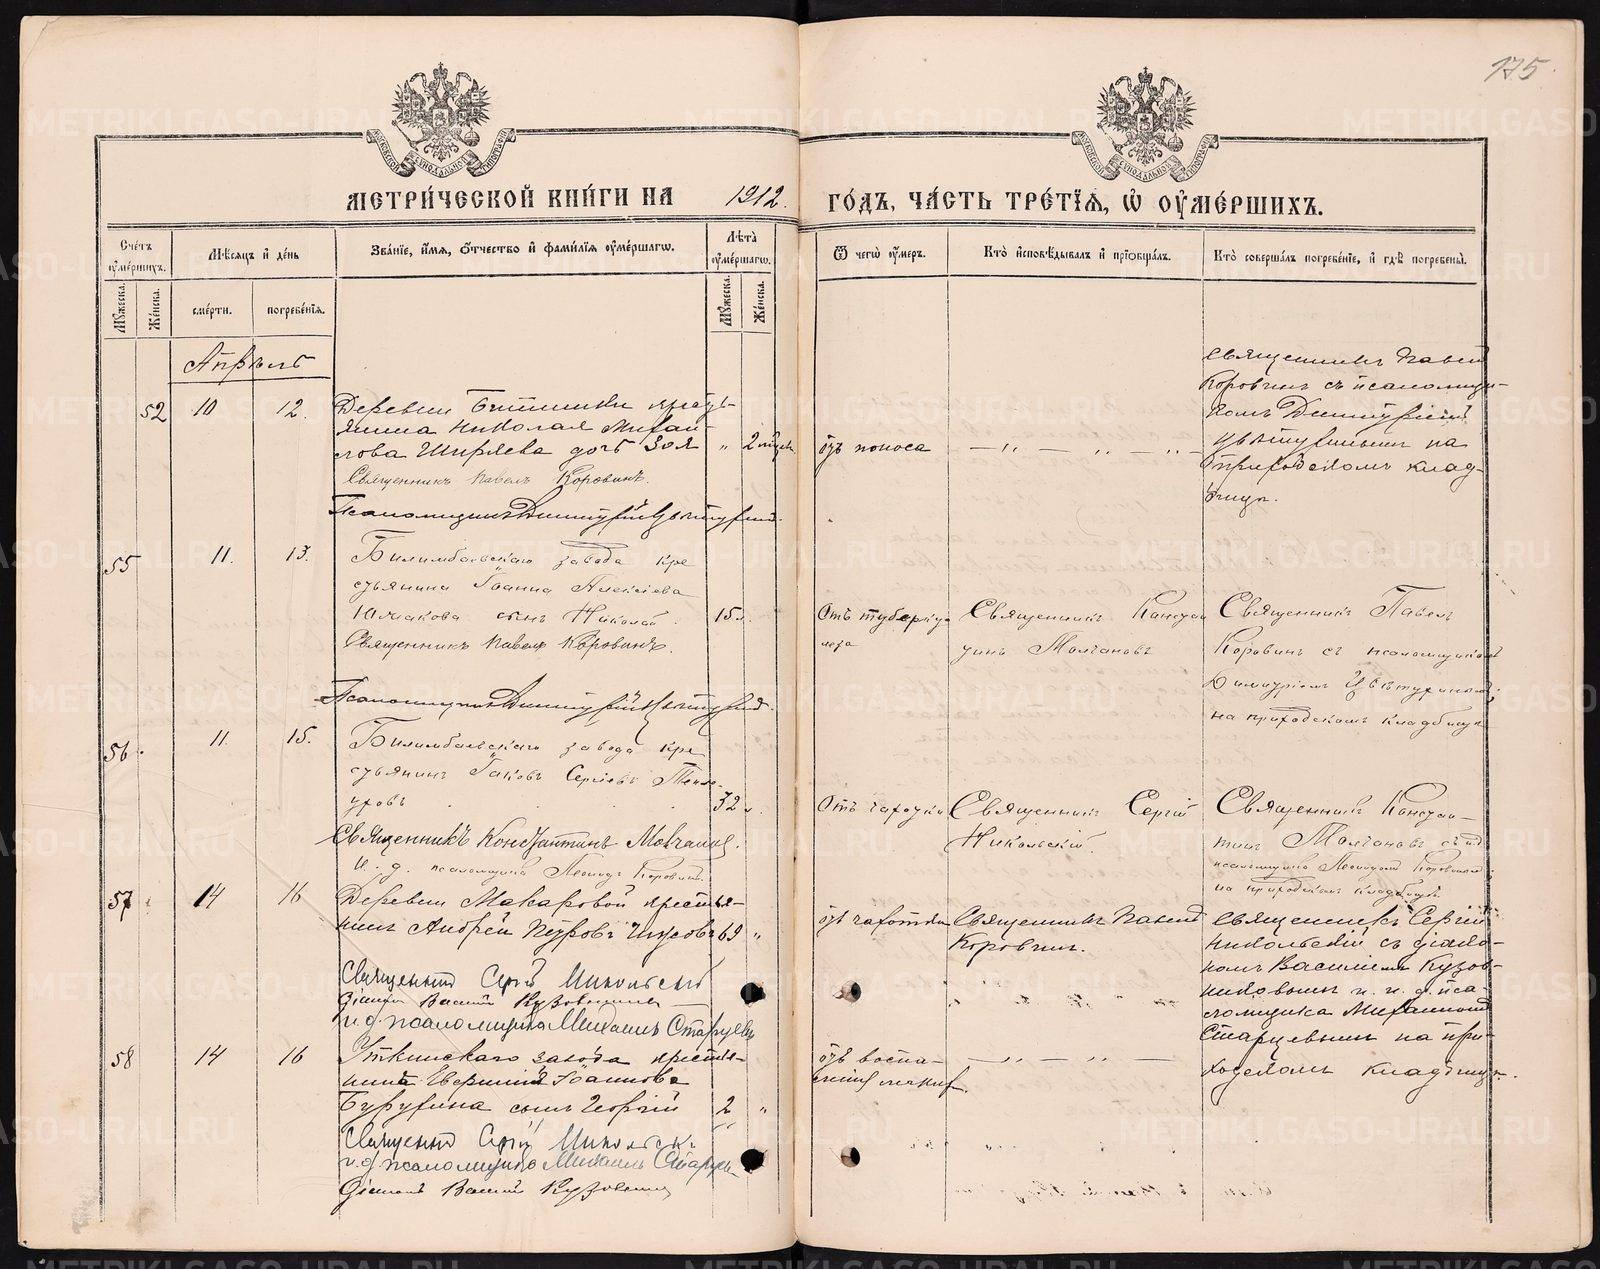 175.
МЕТРИ́ЧЕСКОЙ КНИ́ГИ НА 1912. ГО́ДЪ, ЧА́СТЬ ТРЕ́ТЇѦ, Ѡ ОУМЕ́РШИХЪ.
Сче́тъ оуме́ршихъ.
Мѣ́сяцъ и де́нь
Зва́нїе, и́мѧ, о́тчество и фами́лїѧ оуме́ршагѡ.
Лѣта̀ оуме́ршагѡ.
Ѿ чегѡ̀ оу́меръ.
Кто̀ исповѣ́дывалъ и прїѡбща́лъ.
Кто̀ соверша́лъ погребе́нїе, и гдѣ̀ погребены̀.
Му́жеска.
Же́нска.
сме́рти.
погребе́нїѧ.
Му́жеска.
Же́нска.
Апрѣль
52 10 12.
Деревни крестья-
нина Николая Михай-
лова Ширяева дочь Зоя " 2
Священникъ Павелъ Коровинъ.
Псаломщикъ Димитрій Цвѣтухинъ.
отъ поноса
— " — " — " —
Священникъ Павелъ
Коровинъ съ псаломщи-
комъ Димитріемъ
Цвѣтухинымъ на
приходскомъ клад-
бищѣ.
55 11. 13.
Билимбаевскаго завода кре
стьянина Іоанна Алексіева
Юлчакова сынъ Николай 15 л.
Священникъ Павелъ Коровинъ.
Псаломщикъ Димитрій Цвѣтухинъ.
Отъ туберку
леза
Священникъ Констан
тинъ Молчановъ
Священникъ Павелъ
Коровинъ съ псаломщикомъ
Димитріемъ Цвѣтухинымъ,
на приходскомъ кладбищѣ
56. 11. 15.
Билимбаевскаго завода кре
стьянинъ Іаковъ Сергіевъ
32 л.
Священникъ Константинъ Молчановъ.
И. д. псаломщика Леонидъ Коровинъ.
Отъ чахотки
Священникъ Сергій
Никольскій.
Священникъ Констан-
тинъ Молчановъ съ и.д.
псаломщика Леонидомъ Коровинымъ
на приходскомъ кладбищѣ
57 14 16
Деревни Макаровой крестья-
нинъ Андрей Петровъ 69 "
Священникъ Сергій Никольскій
діаконъ Василій Кузовниковъ
и.д. псаломщика Михаилъ Старцевъ
отъ чахотки
Священникъ Павелъ
Коровинъ.
Священникъ Сергій
Никольскій съ діако-
номъ Василіемъ Кузов-
никовымъ и и. д. пса-
ломщика Михаиломъ
Старцевымъ на при-
ходскомъ кладбищѣ.
58 14 16
Уткинскаго завода крестья-
нина Іоаннова
Бурухина сынъ Георгій 2 "
Священникъ Сергій Никольскій
и.д. псаломщика Михаилъ Старцевъ
діаконъ Василій Кузовниковъ
отъ воспа-
ленія легкихъ.
— " — " —
METRIKI.GASO-URAL.RU